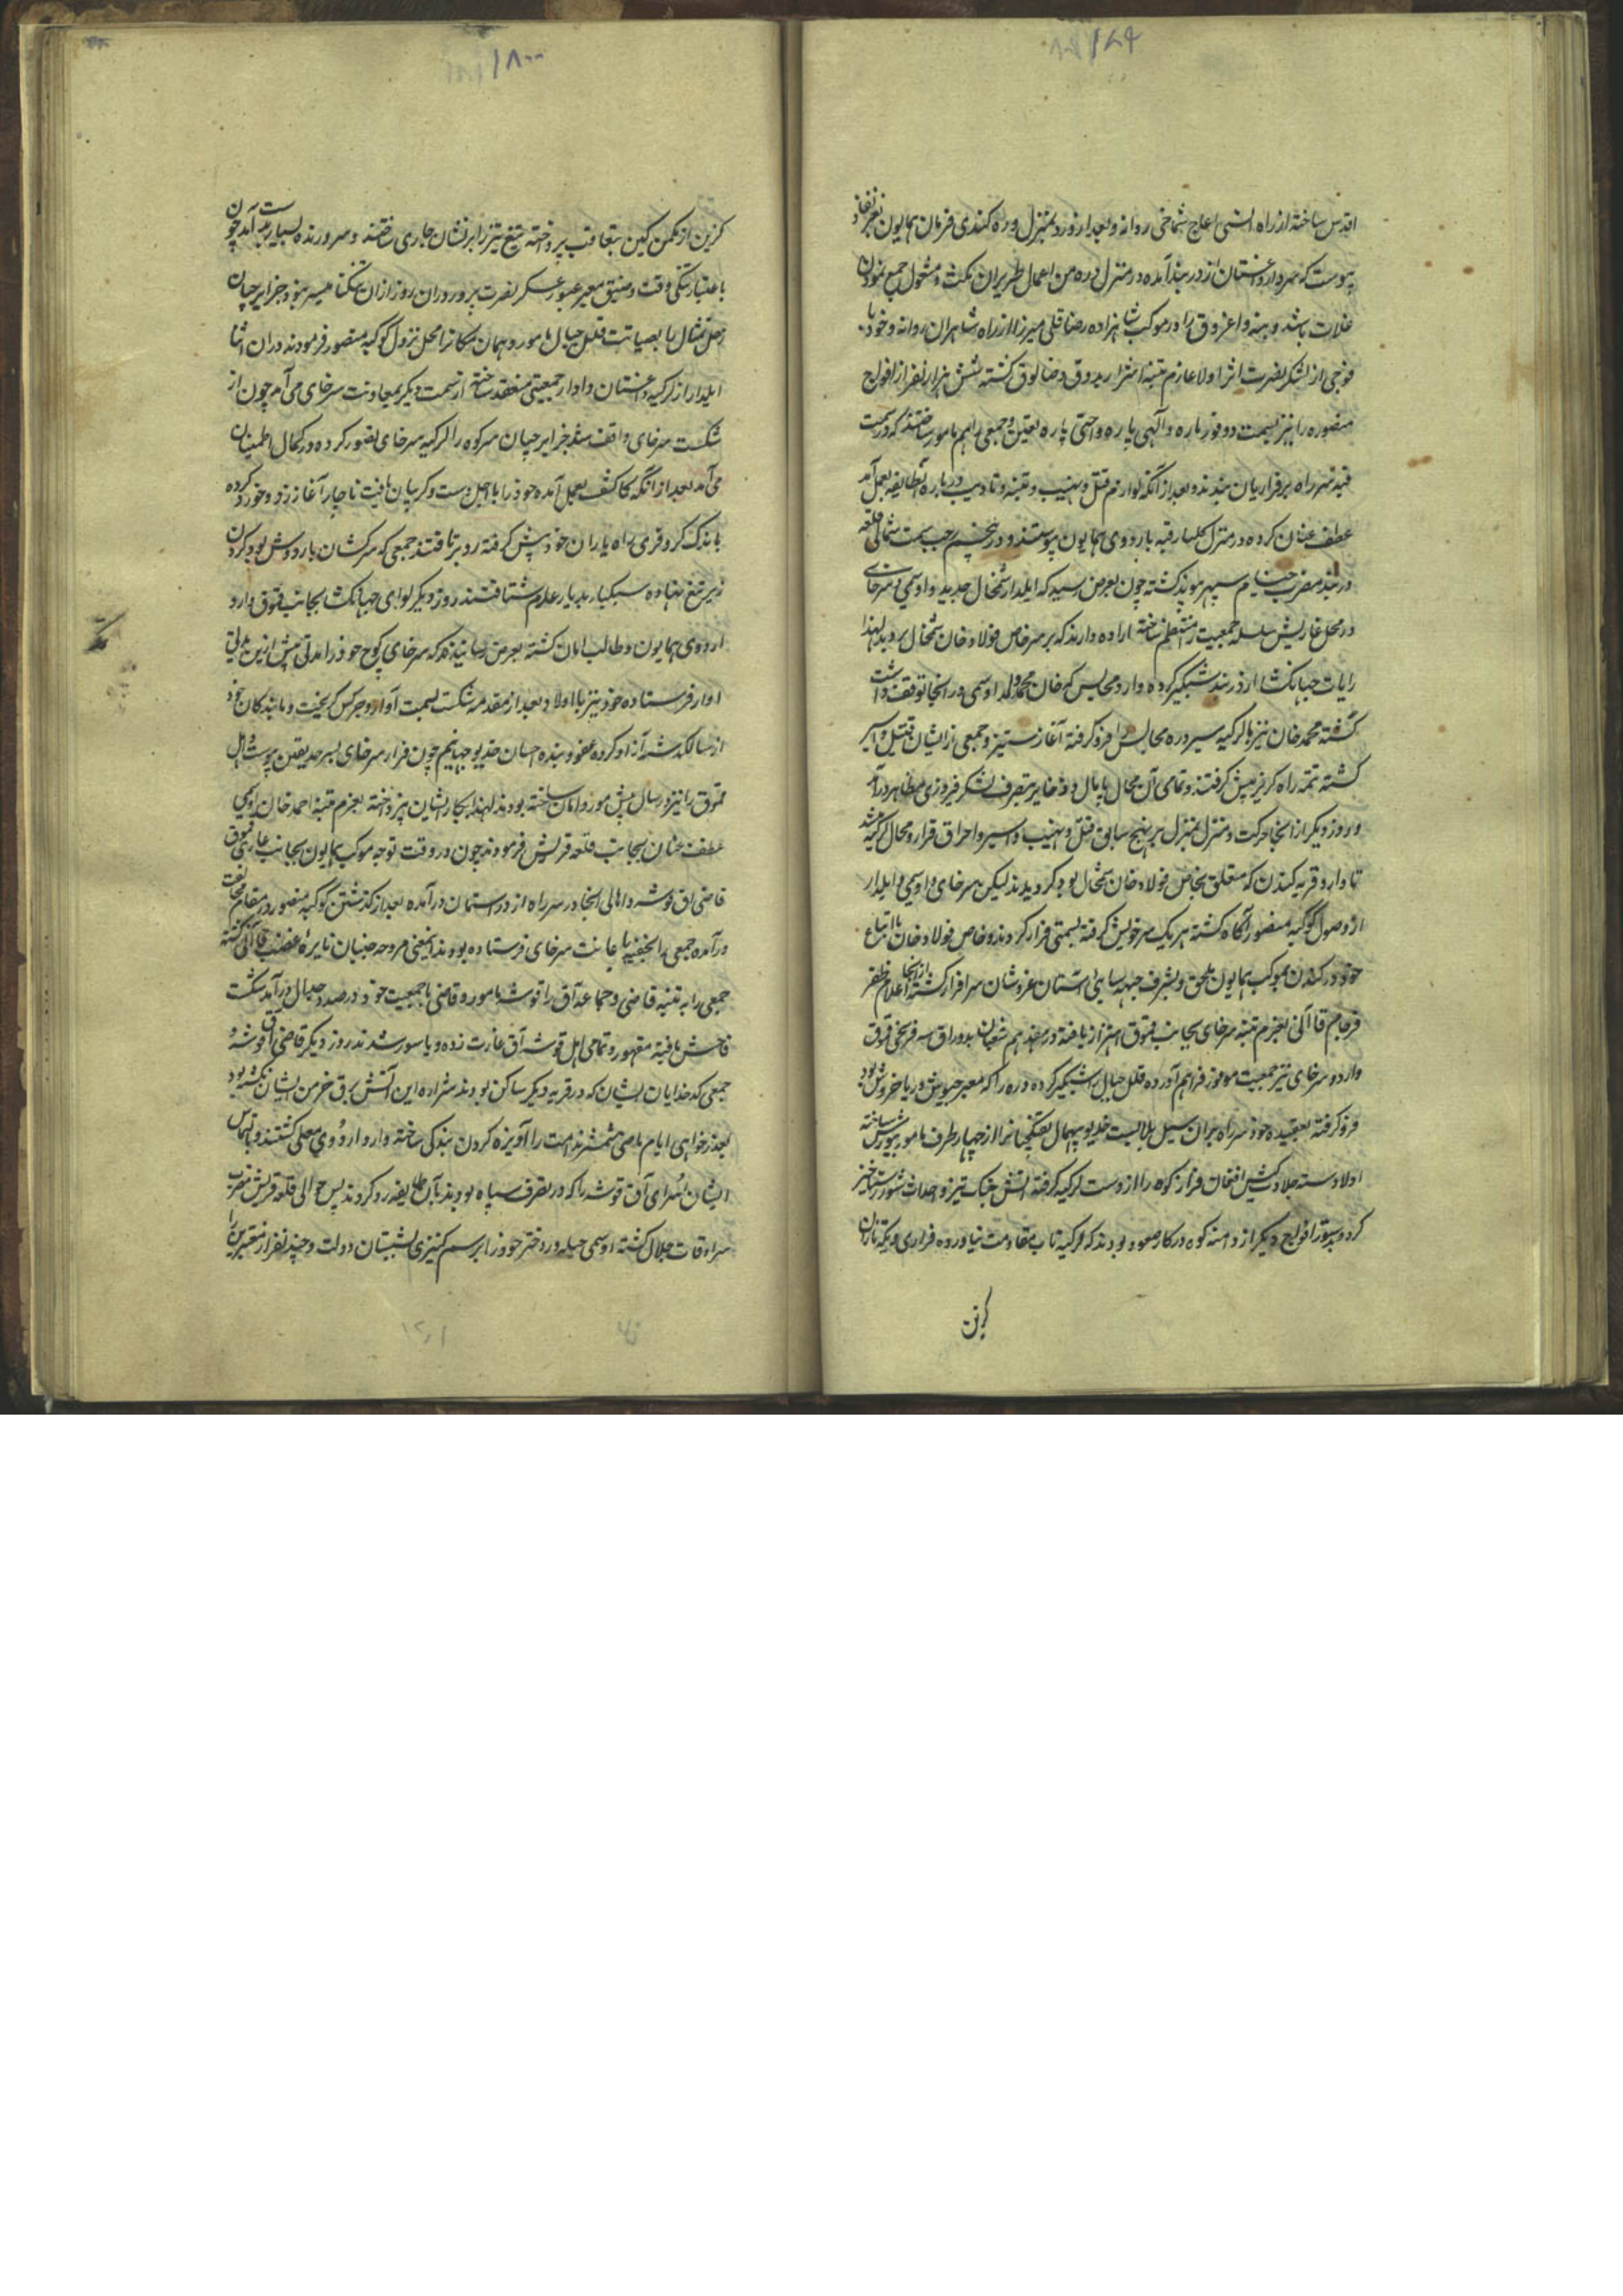 اقدس ساخته از راه التی اعاج شماخی روانه و بعد از ورود بمنزل دره کندی فرمان همایون بعز نفاذ
پیوست که سردار داغستان از دربند آمده در منزل دره من اعمال طبرسران مکث و مشغول جمع نمودن
غلات باشد و بنه و اغروق را در موکب شاهزاده رضا قلی میرزا از راه شابران روانه و خود با
فوجی از لشکر نصرت اثر اولا عازم تنبیه اشرار بدوق و خنالوق گشته شش هزار نفر از افواج
منصوره را نیز بسمت دوقوز پاره و آلهی یاره و اختی پاره تعیین و جمعی را هم مامور ساختند که در سمت
قبه سر راه بر فراریان ببندند و بعد از آنکه لوازم قتل و نهیب و تنبیه و تادیب در باره آنطایفه بعمل آمد
عطف عنان کرده در منزل گلیار قبه باردوی همایون پیوستند و در پنجم رجب سمت شمالی قلعه
دربند مضرب خیام سپهر نمود گشته چون بعرض رسید که ایلدار شمخال جدید و اوسمی و سرخای
در محل غازیش سلسله جمعیت را منتظم ساخته اراده دارند که بر سر خاص فولاد خان شمخال بروند لهذا
رایات جهانگشا از دربند شبگیر کرده وارد مجالیس که خان محمد ولد اوسمی در آنجا توقف داشت
گشته محمد خان نیز با لزکیه سر دره مجالیس را فرو گرفته آغاز ستیز و جمعی از ایشان قتیل و اسیر
گشته تتمه راه گریز پیش گرفتند و تمامی آن محال پایمال و ذخایر بتصرف لشکر فیروزی مظاهر درآمد
و روز دیگر از آنجا حرکت و منزل بمنزل بر نهج سابق قتل و نهیب و اسیر و احراق قرار و محال لزکیه میشد
تا وارد قریه کندن که متعلق بخاص فولاد خان شمخال بود گردیدند لیکن سرخای و اوسمی و ایلدار
از وصول کوکبه منصور آگاه گشته هر یک سر خویش گرفته بسمتی فرار کردند و خاص فولاد خان با اتباع
خود در کندن بموکب همایون ملحق و بشرف جبهه سایی آستان عرش نشان سر افراز گشته از آنجا اعلام ظفر
فرجام قاآنی بعزم تنبیه سرخای بجانب قموق اهتزاز یافته در هفدهم شعبان بدوراق سه فرسخی قموق
وارد و سرخای نیز جمعیت موفور فراهم آورده قلل جبال را شبگیر کرده دره را که معبر جیوش دریا خروش بود
فرو گرفته بعقیده خود سر راه بر آن سیل بلا بست خدیو بیهمال تفنگچیانرا از چهار طرف مامور بیورش ساخته
اولا دسته جلادت کیش افغان فراز کوه را از دست لزکیه گرفته آتش جنگ تیز و احداث شور رستاخیز
کرد و بدستور افواج دیگر از دامنه کوه در کار صعود بودند که لزکیه تاب مقاومت نیاورده فراری و یکه تازان
گزین
گزین از مکمن کین بتعاقب پرداخته تیغ تیز را بر ایشان جاری ساختند و سر و زنده بسیار بدست آمد چون
باعتبار تنگی وقت و ضیق معبر عبور عسکر نصرت پرور در آن روز از آن تنگنا میسر نبود جزایرچیان
زحل تمثال را بصیانت قلل جبال مامور و همان مکانرا محل نزول کوکبه منصور فرمودند در آن اثنا
ایلدار از لزکیه داغستان و اوار جمعیتی منعقد ساخته از سمت دیگر بمعاونت سرخای می آمد چون از
شکست سرخای واقف نشد جزایرچیان سر کوه را لزکیه سرخای تصور کرده در کمال اطمینان
می آمد بعد از آنکه کاکشف بعمل آمده خود را با اجل دست و گریبان یافت ناچار آغاز زد و خورد کرده
باندک کر و فری راه یاران خود پیش گرفته رو برتافتند جمعی که سرکشان بار دوش بود گردن
زیر تیغ نهاده سبکبار بدیار عدم شتافتند روز دیگر لوای جهانگشا بجانب قموق وارد
اردوی همایون و طالب امان گشته بعرض رسانیدند که سرخای کوچ خود را مدتی پیش ازین بدلتی
اوار فرستاده خود نیز با اولاد بعد از مقدمه شکست بسمت آوار و چرکس گریخت و ما بندگان خود
از سالگذشته آزاد کرده عفو و بنده احسان خدیو جهانیم چون فرار سرخای بسر حد یقین پیوست و اهل
قموق را نیز در سال پیش مورد امان ساخته بودند لهذا بکار ایشان نپرداخته بعزم تنبیه احمد خان اوسمی
عطف عنان بجانب قلعه قریش فرمودند چون در وقت توجه موکب همایون بجانب غازی قموق
قاضی آق قوشه و اهالی آنجا در سر راه از در استیمان درآمده بعد از گذشتن کوکبه منصور در مقام مخالفت
درآمده جمعی را بخفیه باعانت سرخای فرستاده بودند اینمعنی مروحه جنبان نایره غضب قاآنی گشته
جمعی را به تنبیه قاضی و جماعه آق قوشه مامور و قاضی با جمعیت خود در صدد جدال درآمد شکست
فاحش یافته مقهور و تمامی اهل قوشه آق غارت زده و یا سور شدند روز دیگر قاضی آق قوشه و
جمعی کدخدایان ایشان که در قریه دیگر ساکن بودند شراره این آتش برق خرمن ایشان نگشته بود
بعذرخواهی ایام ماضی شمشیر ندامت را آویزه گردن بندگی ساخته وارد اردوی معلی گشتند و بالتماس
ایشان اسرای آق قوشه را که در تصرف سپاه بودند بآن طایفه رد کردند پس حوالی قلعه قریش مضرب
سرادقات جلال گشته اوسمی حیله ور دختر خود را برسم کنیزی بشبستان دولت و چند نفر از معتبرین را